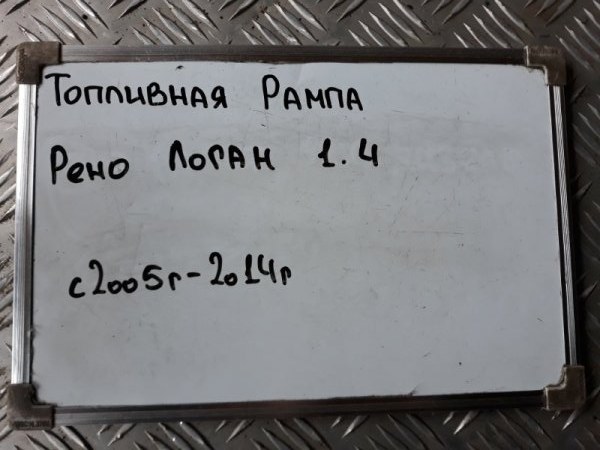 Топливная Рампа
Рено Логан 1.4
с2005г-2014г